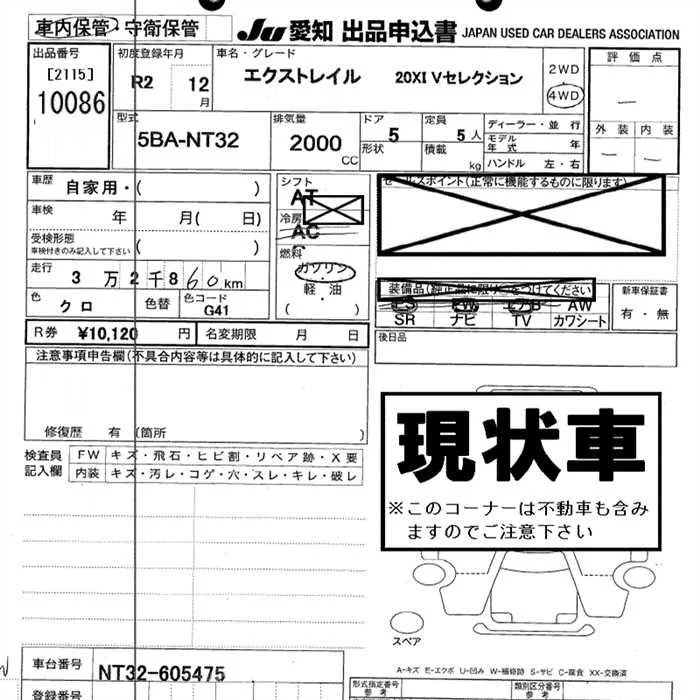 車内保管・守衛保管 JU 愛知 出品申込書 JAPAN USED CAR DEALERS ASSOCIATION
出品番号 初度登録年月 車名・グレード 2WD 評価点
[2115] R2 12月 エクストレイル 20XI Vセレクション 4WD
10086
型式 排気量 ドア 定員 ディーラー・並行 外装 内装
5BA-NT32 2000CC 5 5人 モデル年式 年
形状 積載 kg ハンドル 左・右
車歴 自家用・( ) シフト AT セールスポイント(正常に機能するものに限ります)
車検 年 月( 日) 冷房 AC
受検形態 車検付きのみ記入して下さい ( ) 燃料
走行 3万2千860km ガソリン・
軽・油
( )
装備品(純正品に限り○をつけてください) 新車保証書
色 クロ 色替 色コード G41 AW 有・無
SR ナビ TV カワシート
R券 ¥10,120円 名変期限 月 日 後日品
注意事項申告欄(不具合内容等は具体的に記入して下さい)
修復歴 有 (箇所
検査員記入欄 FW キズ・飛石・ヒビ割・リペア跡・X要
内装 キズ・汚レ・コゲ・穴・スレ・キレ・破レ
現状車
※このコーナーは不動車も含み
ますのでご注意下さい
スペア
A-キズ E-エクボ U-凹み W-補修跡 S-サビ C-腐食 XX-交換済
車台番号 NT32-605475 形式指定番号 参考 類別区分番号 参考
登録番号